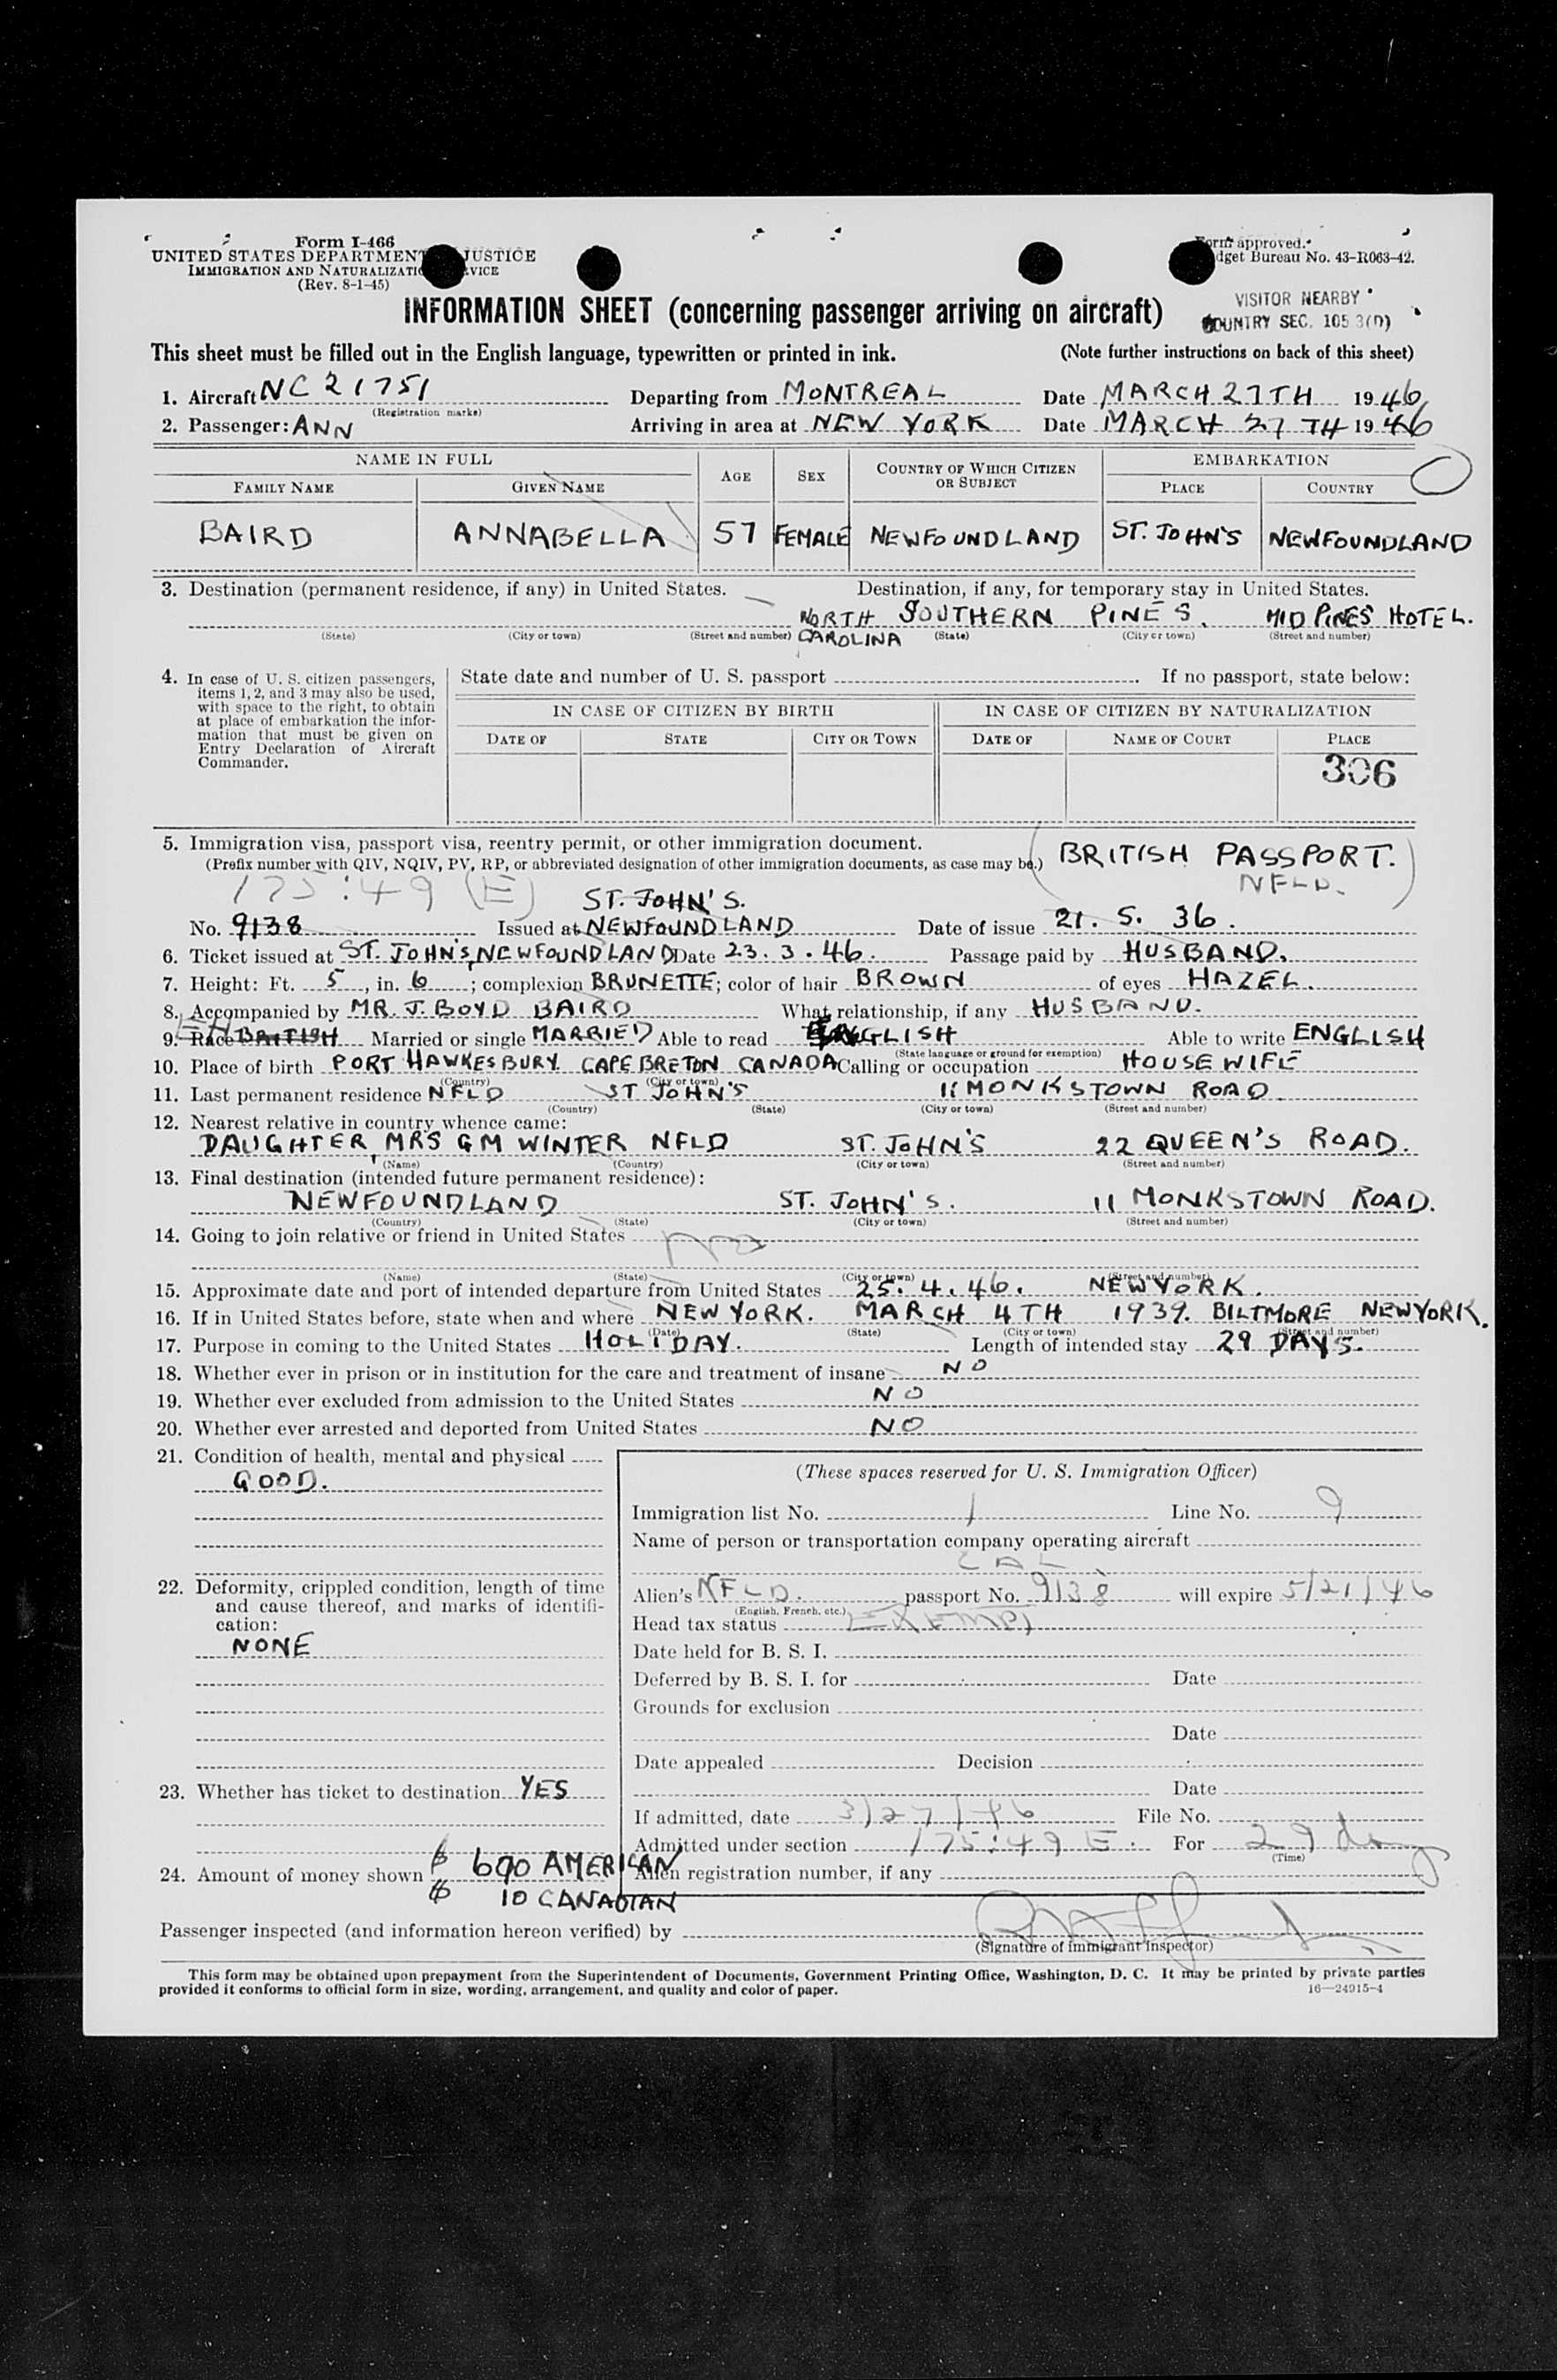 Form I-466
UNITED STATES DEPARTMENT JUSTICE
IMMIGRATION AND NATURALIZATION SERVICE
(Rev. 8-1-45)
Form approved.
Budget Bureau No. 43-R063-42.
INFORMATION SHEET (concerning passenger arriving on aircraft)
VISITOR NEARBY
COUNTRY SEC. 105 3(D)
This sheet must be filled out in the English language, typewritten or printed in ink. (Note further instructions on back of this sheet)
1. Aircraft NC 21751 Departing from MONTREAL Date MARCH 27TH 1946
(Registration marks)
2. Passenger: ANN Arriving in area at NEW YORK Date MARCH 27 TH 1946
NAME IN FULL AGE SEX COUNTRY OF WHICH CITIZEN OR SUBJECT EMBARKATION
FAMILY NAME GIVEN NAME PLACE COUNTRY
BAIRD ANNABELLA 57 FEMALE NEWFOUNDLAND ST. JOHN'S NEWFOUNDLAND
3. Destination (permanent residence, if any) in United States. Destination, if any, for temporary stay in United States.
NORTH CAROLINA SOUTHERN PINES. MID PINES HOTEL.
(State) (City or town) (Street and number) (State) (City or town) (Street and number)
4. In case of U. S. citizen passengers, items 1, 2, and 3 may also be used, with space to the right, to obtain at place of embarkation the information that must be given on Entry Declaration of Aircraft Commander.
State date and number of U. S. passport If no passport, state below:
IN CASE OF CITIZEN BY BIRTH IN CASE OF CITIZEN BY NATURALIZATION
DATE OF STATE CITY OR TOWN DATE OF NAME OF COURT PLACE
306
5. Immigration visa, passport visa, reentry permit, or other immigration document.
(Prefix number with QIV, NQIV, PV, RP, or abbreviated designation of other immigration documents, as case may be.) BRITISH PASSPORT.
175:49 (E) NFLD.
ST. JOHN'S.
No. 9138 Issued at NEWFOUNDLAND Date of issue 21. 5. 36.
6. Ticket issued at ST. JOHN'S, NEWFOUNDLAND Date 23.3.46. Passage paid by HUSBAND.
7. Height: Ft. 5, in. 6; complexion BRUNETTE; color of hair BROWN of eyes HAZEL.
8. Accompanied by MR. J. BOYD BAIRD What relationship, if any HUSBAND.
9. Race BRITISH Married or single MARRIED Able to read ENGLISH Able to write ENGLISH
(State language or ground for exemption)
10. Place of birth PORT HAWKESBURY CAPE BRETON CANADA Calling or occupation HOUSEWIFE
(Country) (City or town)
11. Last permanent residence NFLD ST JOHN'S 11 MONKSTOWN ROAD.
(Country) (State) (City or town) (Street and number)
12. Nearest relative in country whence came:
DAUGHTER, MRS G M WINTER NFLD ST. JOHN'S 22 QUEEN'S ROAD.
(Name) (Country) (City or town) (Street and number)
13. Final destination (intended future permanent residence):
NEWFOUNDLAND ST. JOHN'S. 11 MONKSTOWN ROAD.
(Country) (State) (City or town) (Street and number)
14. Going to join relative or friend in United States no
(Name) (State) (City or town) (Street and number)
15. Approximate date and port of intended departure from United States 25.4.46. NEW YORK.
16. If in United States before, state when and where NEW YORK. MARCH 4TH 1939. BILTMORE NEW YORK.
(Date) (State) (City or town) (Street and number)
17. Purpose in coming to the United States HOLIDAY. Length of intended stay 29 DAYS.
18. Whether ever in prison or in institution for the care and treatment of insane NO
19. Whether ever excluded from admission to the United States NO
20. Whether ever arrested and deported from United States NO
21. Condition of health, mental and physical
GOOD.
22. Deformity, crippled condition, length of time and cause thereof, and marks of identification:
NONE
23. Whether has ticket to destination YES
24. Amount of money shown $ 600 AMERICAN
$ 10 CANADIAN
(These spaces reserved for U. S. Immigration Officer)
Immigration list No. 1 Line No. 9
Name of person or transportation company operating aircraft
CAL
Alien's NFLD. passport No. 9138 will expire 5/21/46
(English, French, etc.)
Head tax status EXEMPT
Date held for B. S. I.
Deferred by B. S. I. for Date
Grounds for exclusion
Date
Date appealed Decision
Date
If admitted, date 3/27/46 File No.
Admitted under section 175:49 E. For 29 days
(Time)
Alien registration number, if any
Passenger inspected (and information hereon verified) by
(Signature of Immigrant Inspector)
This form may be obtained upon prepayment from the Superintendent of Documents, Government Printing Office, Washington, D. C. It may be printed by private parties
provided it conforms to official form in size, wording, arrangement, and quality and color of paper. 16—24915-4